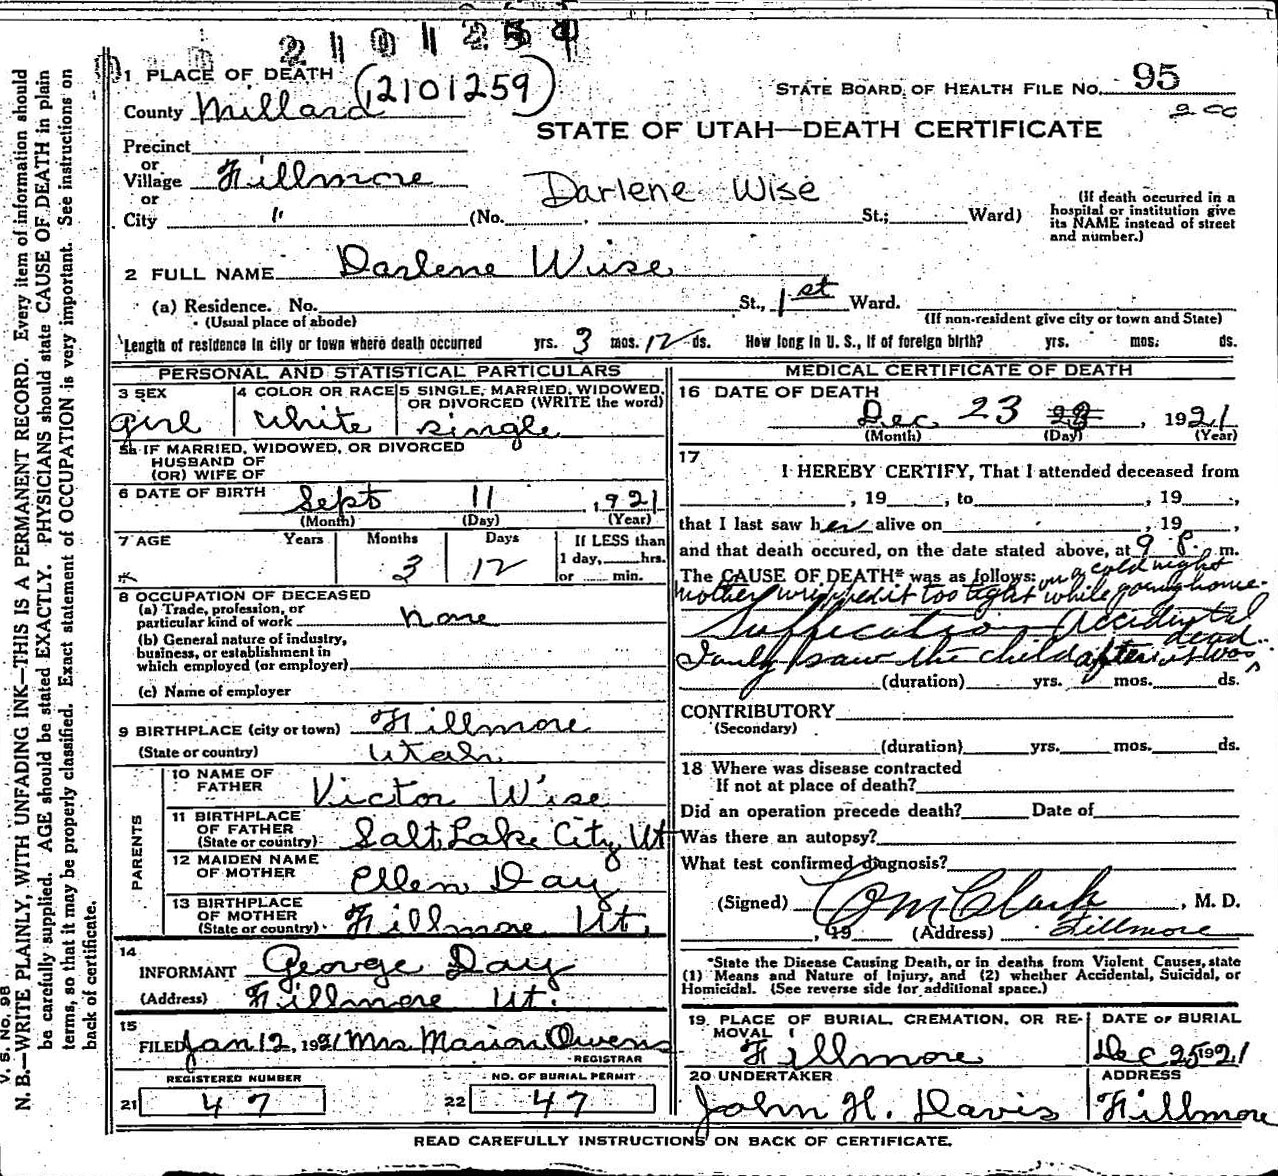 2101259
1 PLACE OF DEATH (2101259)
STATE BOARD OF HEALTH FILE No. 95
200
County Millard
STATE OF UTAH—DEATH CERTIFICATE
Precinct
or
Village Fillmore
Darlene Wise
or
City " (No. St.; Ward)
(If death occurred in a
hospital or institution give
its NAME instead of street
and number.)
2 FULL NAME Darlene Wise
(a) Residence. No. St., 1st Ward.
(Usual place of abode)
(If non-resident give city or town and State)
Length of residence in city or town where death occurred yrs. 3 mos. 12 ds. How long in U. S., if of foreign birth? yrs. mos. ds.
PERSONAL AND STATISTICAL PARTICULARS
3 SEX
girl
4 COLOR OR RACE
White
5 SINGLE, MARRIED, WIDOWED,
OR DIVORCED (WRITE the word)
single
5a IF MARRIED, WIDOWED, OR DIVORCED
HUSBAND OF
(OR) WIFE OF
6 DATE OF BIRTH Sept 11, 1921
(Month) (Day) (Year)
7 AGE Years Months Days If LESS than
3 12 1 day, hrs.
or min.
8 OCCUPATION OF DECEASED
(a) Trade, profession, or
particular kind of work none
(b) General nature of industry,
business, or establishment in
which employed (or employer)
(c) Name of employer
9 BIRTHPLACE (city or town) Fillmore
(State or country) Utah
PARENTS
10 NAME OF
FATHER Victor Wise
11 BIRTHPLACE
OF FATHER
(State or country) Salt Lake City Ut
12 MAIDEN NAME
OF MOTHER Ellen Day
13 BIRTHPLACE
OF MOTHER
(State or country) Fillmore Ut.
14
INFORMANT George Day
(Address) Fillmore Ut.
15
FILED Jan 12, 1921 Mrs Marion Owens
REGISTRAR
REGISTERED NUMBER
21 47
NO. OF BURIAL PERMIT
22 47
MEDICAL CERTIFICATE OF DEATH
16 DATE OF DEATH
Dec 23 23, 1921
(Month) (Day) (Year)
17
I HEREBY CERTIFY, That I attended deceased from
, 19 , to , 19 ,
that I last saw her alive on , 19 ,
and that death occured, on the date stated above, at 9 P. m.
The CAUSE OF DEATH* was as follows: on a cold night
mother wrapped it too tight while going home.
Suffication Accidental
I only saw the child after it was dead.
(duration) yrs. mos. ds.
CONTRIBUTORY
(Secondary)
(duration) yrs. mos. ds.
18 Where was disease contracted
If not at place of death?
Did an operation precede death? Date of
Was there an autopsy?
What test confirmed diagnosis?
(Signed) C M Clark, M. D.
, 19 (Address) Fillmore
*State the Disease Causing Death, or in deaths from Violent Causes, state
(1) Means and Nature of Injury, and (2) whether Accidental, Suicidal, or
Homicidal. (See reverse side for additional space.)
19 PLACE OF BURIAL, CREMATION, OR RE-
MOVAL
Fillmore
DATE OF BURIAL
Dec 25 1921
20 UNDERTAKER
John H. Davis
ADDRESS
Fillmore
READ CAREFULLY INSTRUCTIONS ON BACK OF CERTIFICATE.
V. S. No. 98
N. B.—WRITE PLAINLY, WITH UNFADING INK—THIS IS A PERMANENT RECORD. Every item of information should
be carefully supplied. AGE should be stated EXACTLY. PHYSICIANS should state CAUSE OF DEATH in plain
terms, so that it may be properly classified. Exact statement of OCCUPATION is very important. See instructions on
back of certificate.